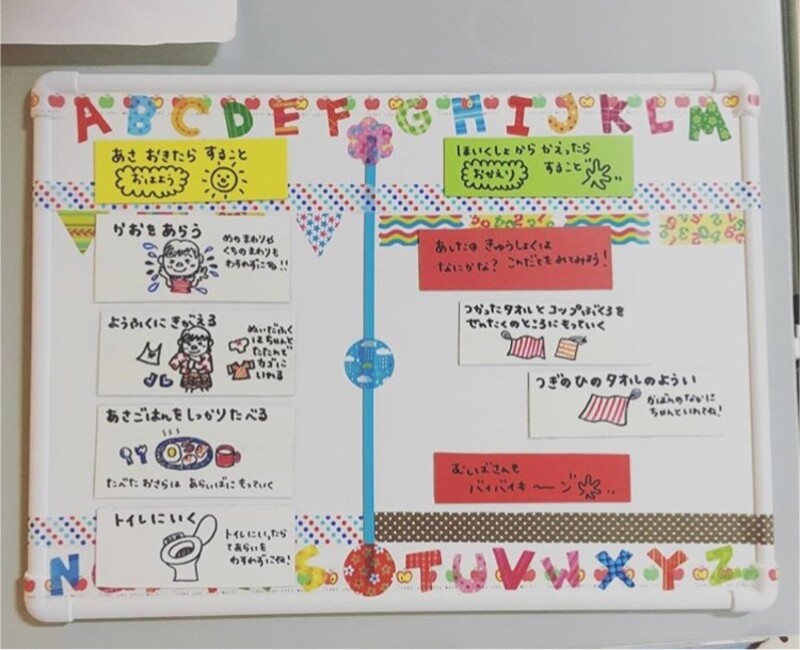 A B C D E F G H I J K L M
あさ おきたら すること
おはよう
かおをあらう
めのまわりや
くちのまわりも
わすれずにね!!
ようふくにきがえる
ぬいだふく
はちゃんと
たたんで
カゴに
いれる
あさごはんをしっかりたべる
たべた おさらは あらいばに もっていく
トイレにいく
トイレにいったら
てあらいを
わすれずにね!
ほいくしょから かえったら
おかえり
すること
あしたの きゅうしょくは
なにかな? こんだてをみてみよう!
つかったタオルとコップぶくろを
せんたくのところにもっていく
つぎのひのタオルのようい
かばんのなかに
ちゃんといれてね!
むしばさんを
バイバイキーン
N S T U V W X Y Z